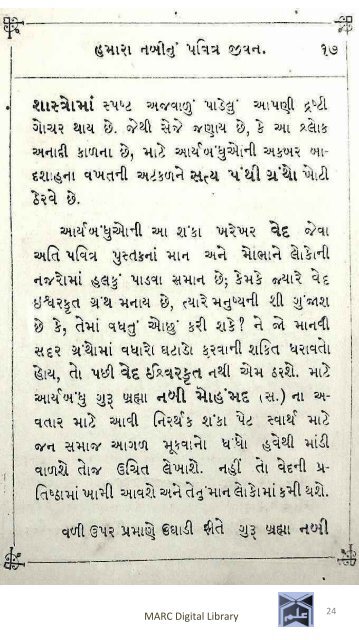 હમારા નબીનું પવિત્ર જીવન. ૧૭
શાસ્ત્રોમાં સ્પષ્ટ અજવાળું પાડેલું આપણી દ્રષ્ટી
ગોચર થાય છે. જેથી સેજે જણાય છે, કે આ શ્લોક
અનાદી કાળના છે, માટે આર્યબંધુઓની અકબર બા-
દશાહના વખતની અટકળને સત્ય પંથી ગ્રંથો ખોટી
ઠેરવે છે.
આર્યબંધુઓની આ શંકા ખરેખર વેદ જેવા
અતિ પવિત્ર પુસ્તકનાં માન અને મોભાને લોકોની
નજરોમાં હલકું પાડવા સમાન છે; કેમકે જ્યારે વેદ
ઇશ્વરકૃત ગ્રંથ મનાય છે, ત્યારે મનુષ્યની શી ગુંજાશ
છે કે, તેમાં વધતું ઓછું કરી શકે? ને જો માનવી
સદર ગ્રંથોમાં વધારો ઘટાડો કરવાની શકિત ધરાવતો
હોય, તો પછી વેદ ઇશ્વરકૃત નથી એમ ઠરશે. માટે
આર્યબંધુ ગુરૂ બ્રહ્મા નબી મોહંમદ (સ.) ના અ-
વતાર માટે આવી નિરર્થક શંકા પેટ સ્વાર્થ માટે
જન સમાજ આગળ મૂકવાનો ધંધો હવેથી માંડી
વાળશે તોજ ઉચિત લેખાશે. નહીં તો વેદની પ્ર-
તિષ્ઠામાં ખામી આવશે અને તેનું માન લોકોમાં કમી થશે.
વળી ઉપર પ્રમાણે ઉઘાડી રીતે ગુરૂ બ્રહ્મા નબી
MARC Digital Library
علم
24